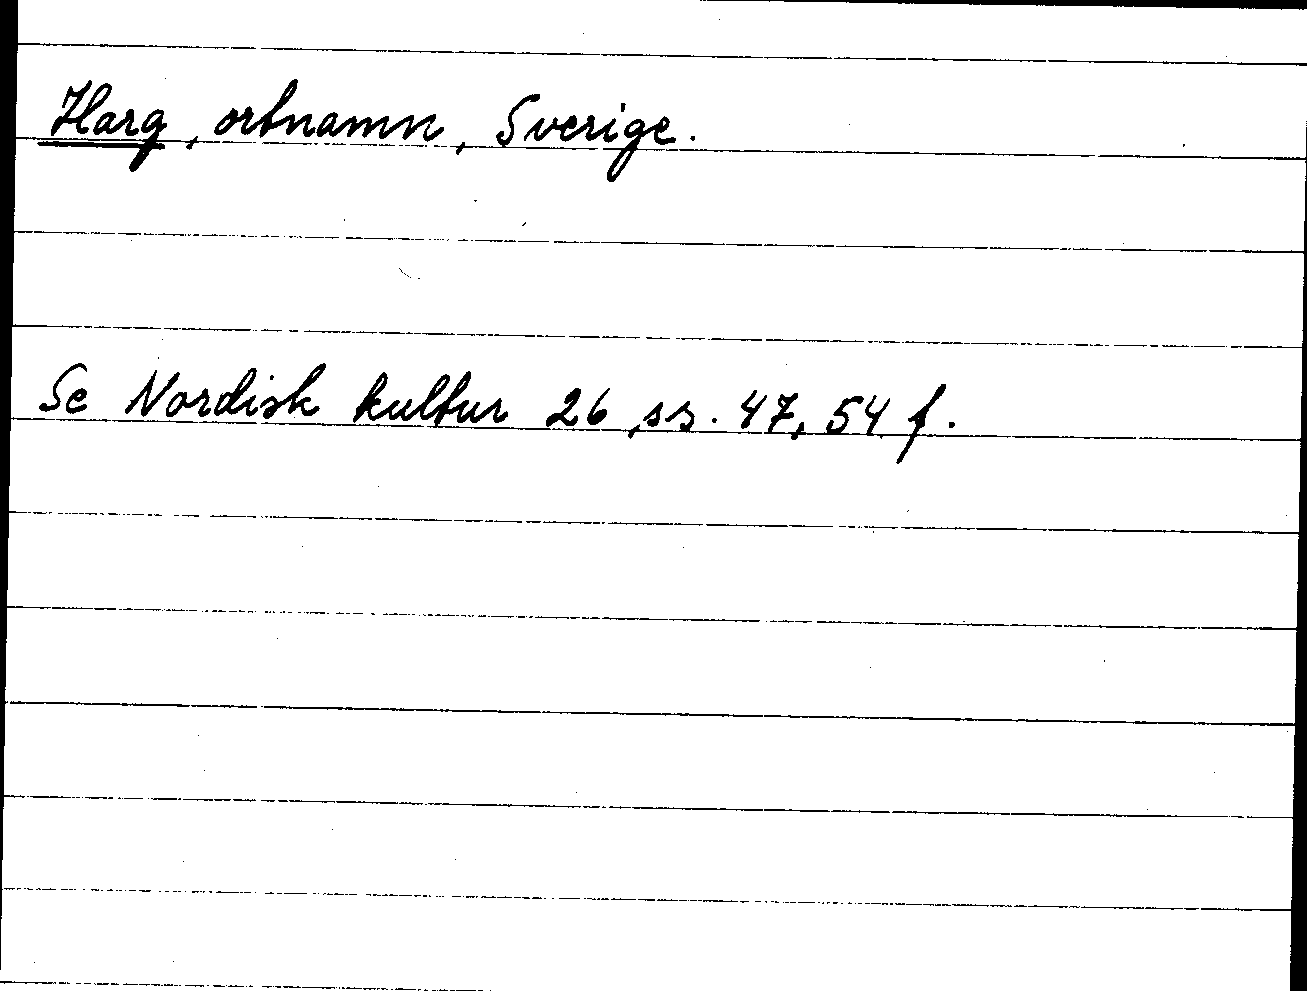 Harg, ortnamn, Sverige.
Se Nordisk kultur 26, ss. 47, 54 f.